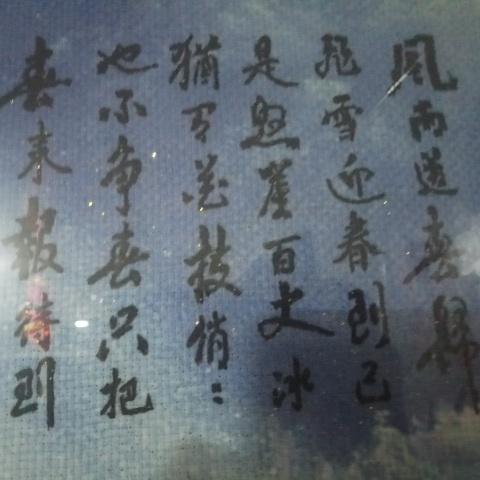 風雨送春歸
飛雪迎春到已
是悬崖百丈冰
猶有花枝俏：：
也不争春只把
春来報待到